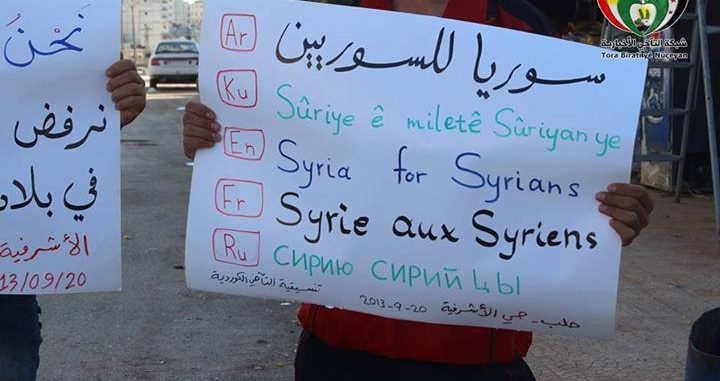 نَحْنُ
نرفض
في بلاد
الأشرفية
13/09/20
Ar سوريا للسوريين
Ku Sûriye ê miletê Sûriyan ye
En Syria for Syrians
Fr Syrie aux Syriens
Ru сирию сирийцы
تنسيقية التآخي الكوردية
حلب - حي الأشرفية 20-9-2013
شبكة التآخي الأخبارية
Tora Biratiyê Nûçeyan